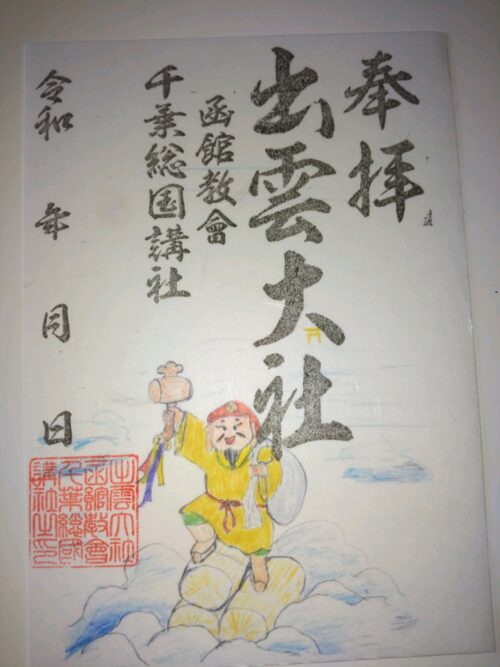 奉拝
出雲大社
函館教會
千葉総国講社
令和 年 月 日
出雲大社
函館教會
千葉總國
講社之印